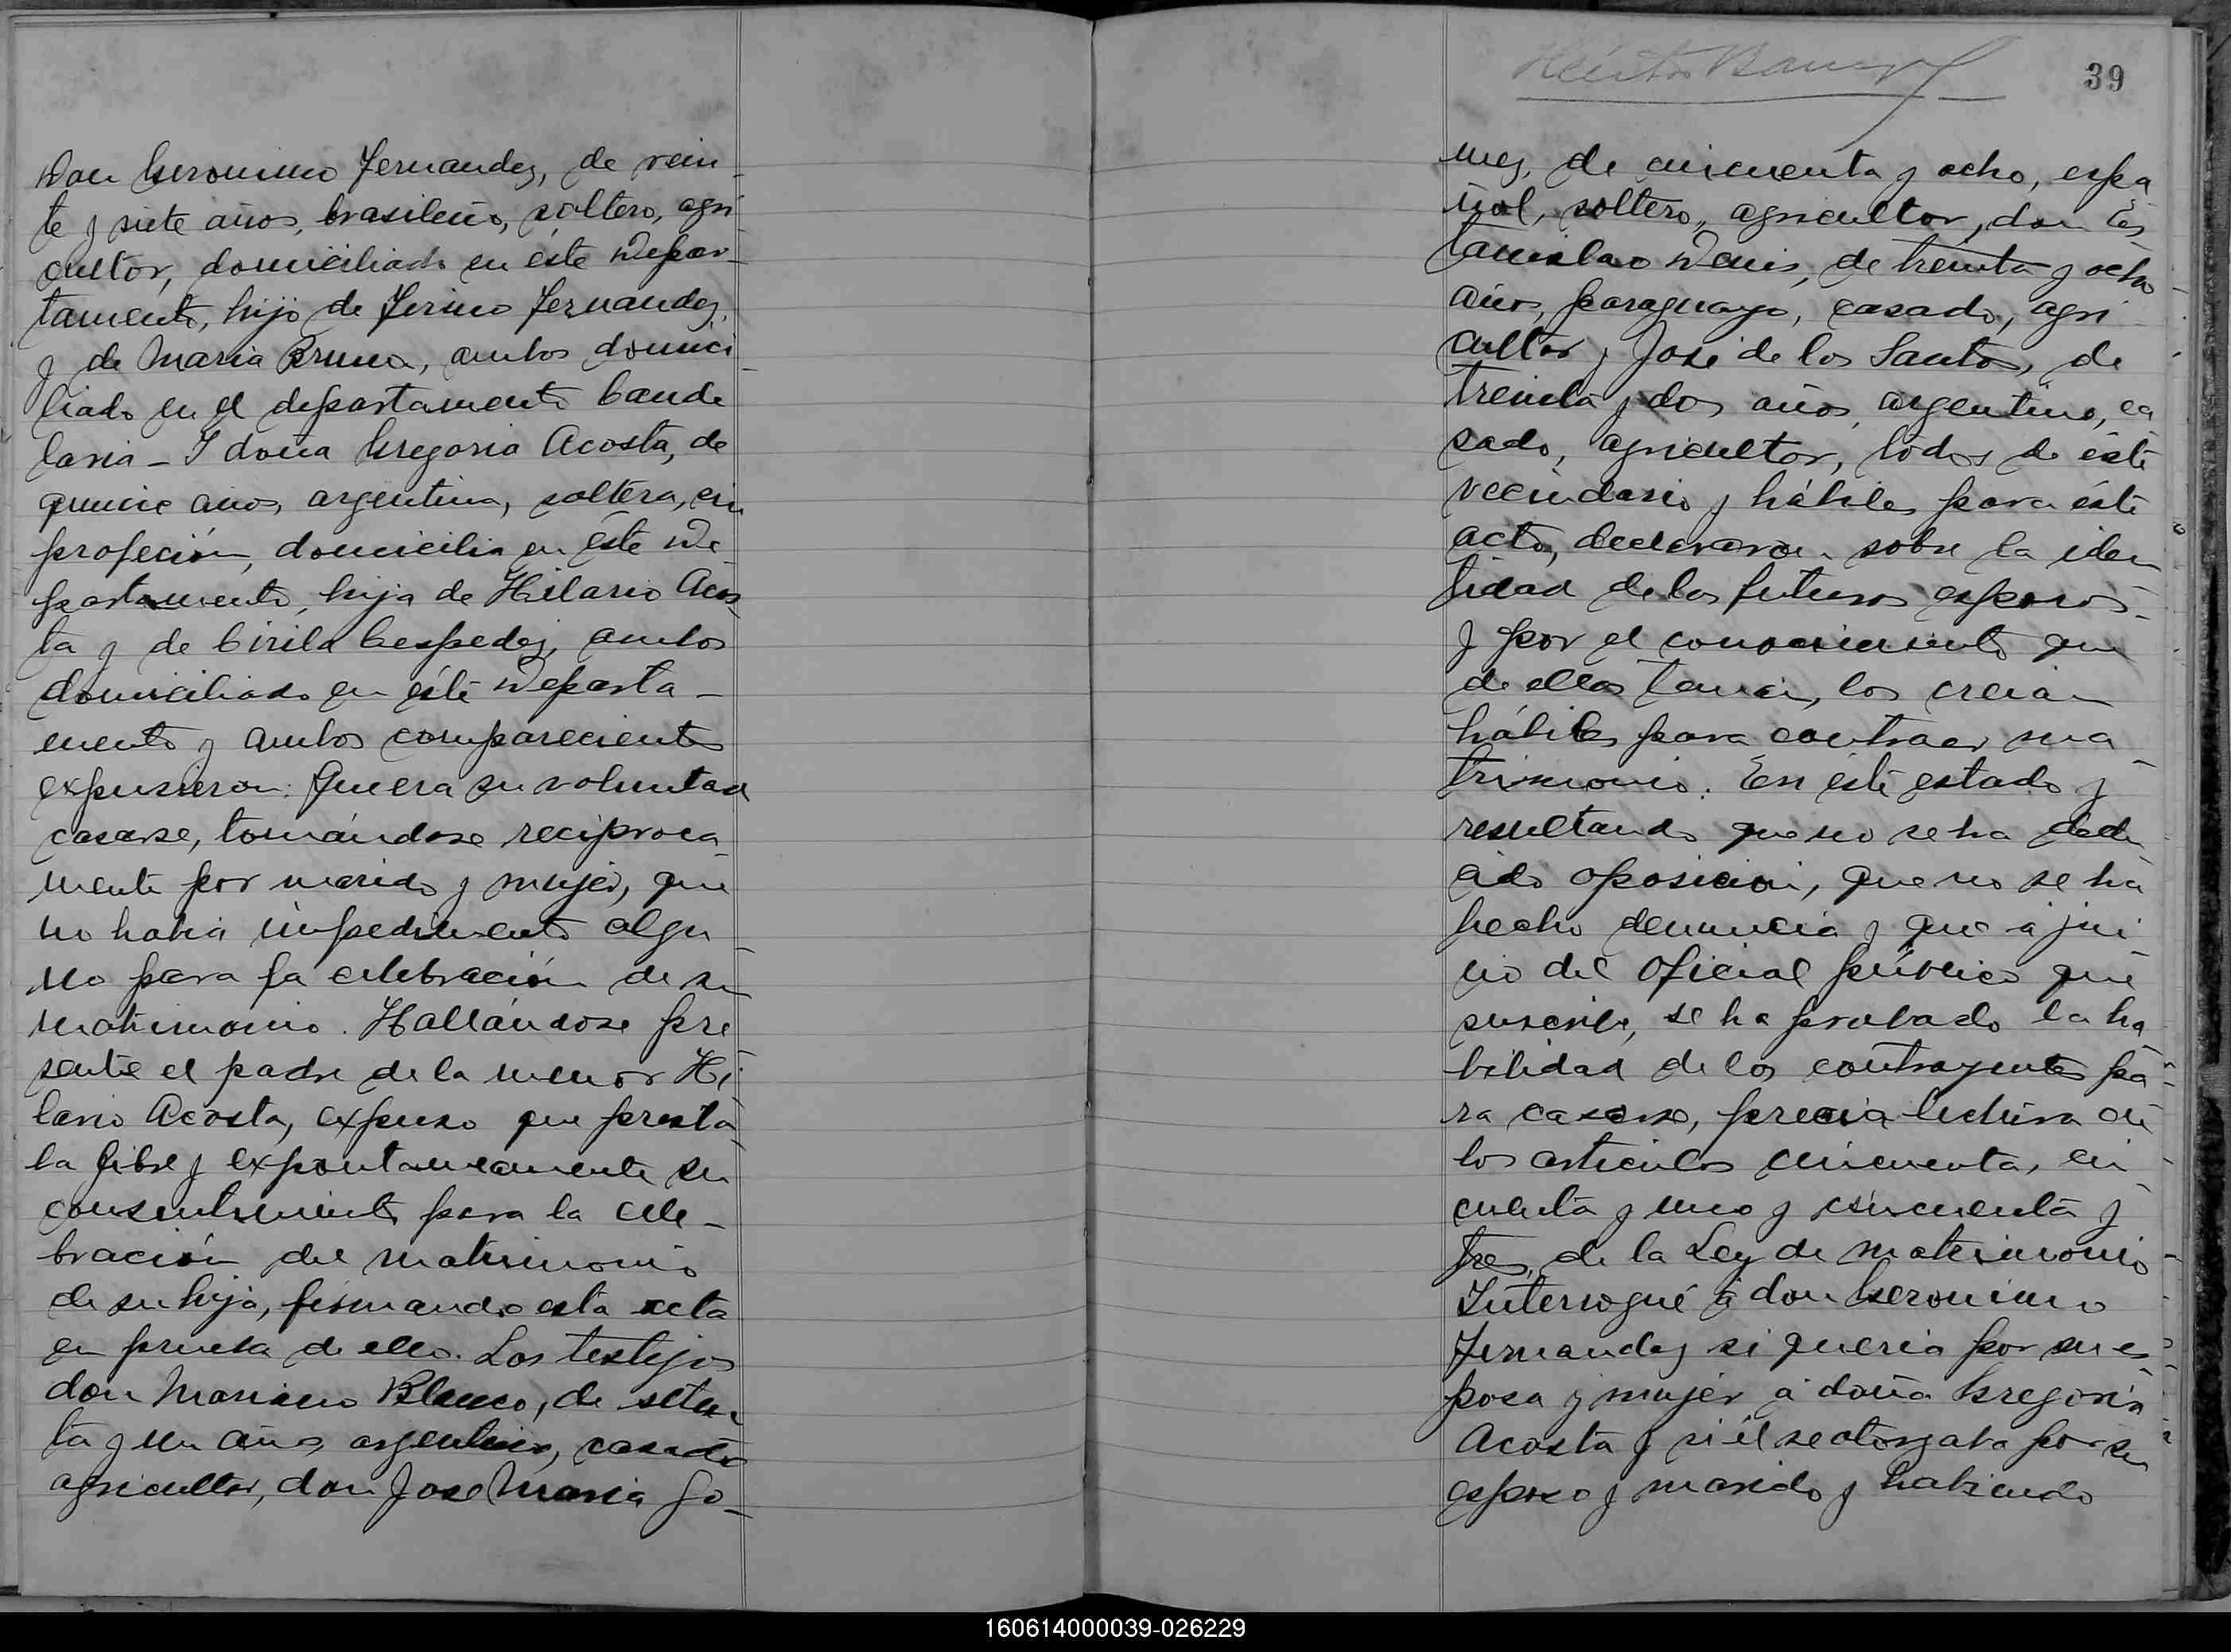 Don Geronimo Fernandez, de vein
te y siete años, brasileño, soltero, agri
cultor, domiciliado en éste Depar-
tamento, hijo de Fernandez,
y de Maria Bruna, ambos domici-
liado en el departamento Cande
laria - I doña Gregoria Acosta, de
quince años, argentina, soltera, sin
profeción, domicilia en éste De
partamento, hija de Hilario Acos
ta y de Cirila Cespedez, ambos
domiciliado en ésté Departa-
mento y ambos comparecientes
expusieron: Que era su voluntad
casarse, tomándose reciproca
mente por marido y mujér, que
no habia impedimento algu-
no para la celebración de su
matrimonio. Hallándose pre
sente el padre de la menor Hi
lario Acosta, expuso que presta-
ba libre y expontaneamente su
consentimiento para la cele-
bración del matrimonio
de su hija, firmando esta acta
en prueba de ello. Los testigos
don Mariano Blanco, de seten
ta y un años, argentino, casado
agricultor, don José Maria Go-
39
mez, de cincuenta y ocho, espa
ñol, soltero, agricultor, don Es
tanislao Denis, de treinta y ocho
años, paraguayo, casado, agri
cultor y José de los Santos, de
treinta y dos años, argentino, ca
sado, agricultor, todos de éste
vecindario y hábiles para éste
acto, declararon sobre la iden
tidad de los futuros esposos
y por el conocimiento que
de ellos tenian, los creian
hábiles para contraer ma
trimonio. En éste estado y
resultando que no se ha dedu
cido oposicion, que no se ha
hecho denuncia y que á jui
cio del oficial público que
suscribe, se ha probado la ha
bilidad de los contrayentes pa
ra casarse, previa lectura de
los articulos cincuenta, cin
cuenta y uno y cincuenta y
tres, de la Ley de Matrimonio
Interrogué á don Geronimo
Fernandez si queria por su es
posa y mujér á doña Gregoria
Acosta y si él se otorgaba por su
esposo y marido y habiendo
160614000039-026229